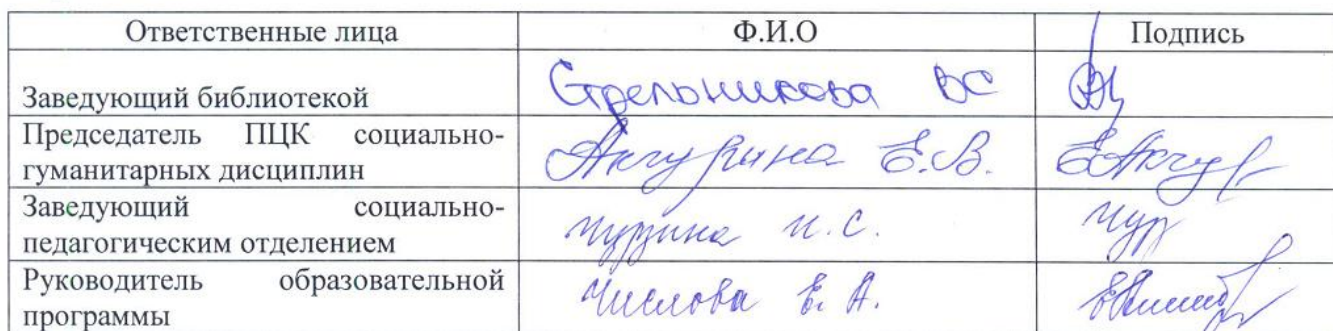 Ответственные лица Ф.И.О Подпись
Заведующий библиотекой Стрельникова ВС
Председатель ПЦК социально-
гуманитарных дисциплин Акчурина Е.В. ЕАкчур
Заведующий социально-
педагогическим отделением И.С.
Руководитель образовательной
программы Числова Е.А.